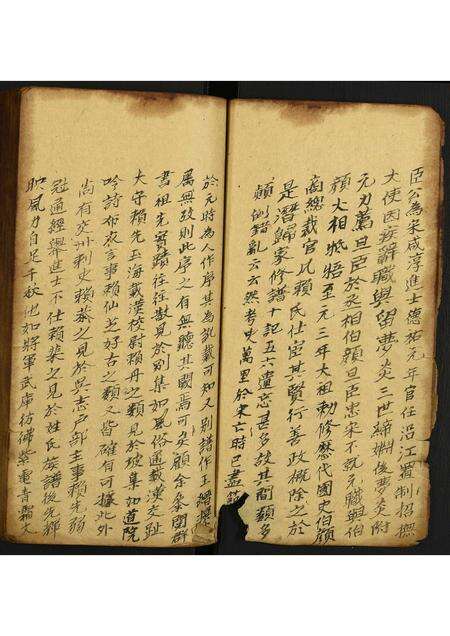 臣公為宋咸淳進士德祐元年官任沿江置制招撫
大使因疾辭職與留夢炎三世締姻後夢炎附
元力薦旦臣於丞相伯顏旦臣忠宋不就元職與伯
顏大相牴牾至元三年大祖勅修歷代國史伯顏
商總裁官比賴氏仕宦其賢行善政概除之於
是潛歸家修譜十記五六遺忘甚多故其間類多
顛倒錯亂云云然考史萬里於宋亡時已盡節
於元時為人作序其為訛戴可知又別譜作王
屬無玫則此序之有無聽其闕焉可矣顧余參閱群
書祖先實蹟往往散見於別集如風俗通載漢交趾
太守賴先玉海載漢校尉賴丹之類見於坡集如道院
吟詩布衣言事賴仙芝好古之類又皆確有可據此外
尚有交州刺史賴恭之見於吳志戶部主事賴先弱
冠通經舉進士不仕賴棐之見於姓氏族譜後先輝
映風力自足千秋他如將軍武庫彷彿紫電青霜